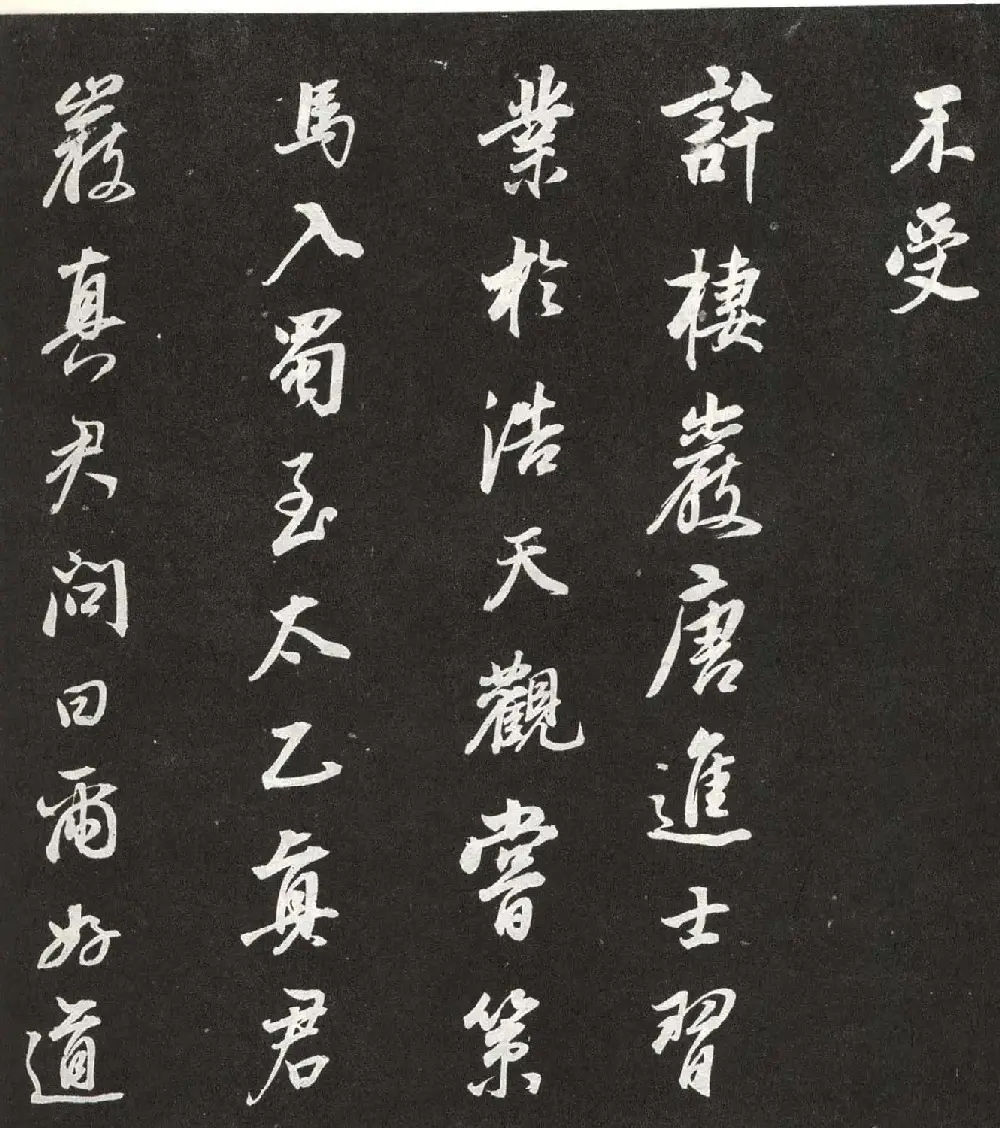 不受
許棲巖唐進士習
業於浩天觀嘗策
馬入蜀至太乙真君
巖真君問曰爾好道